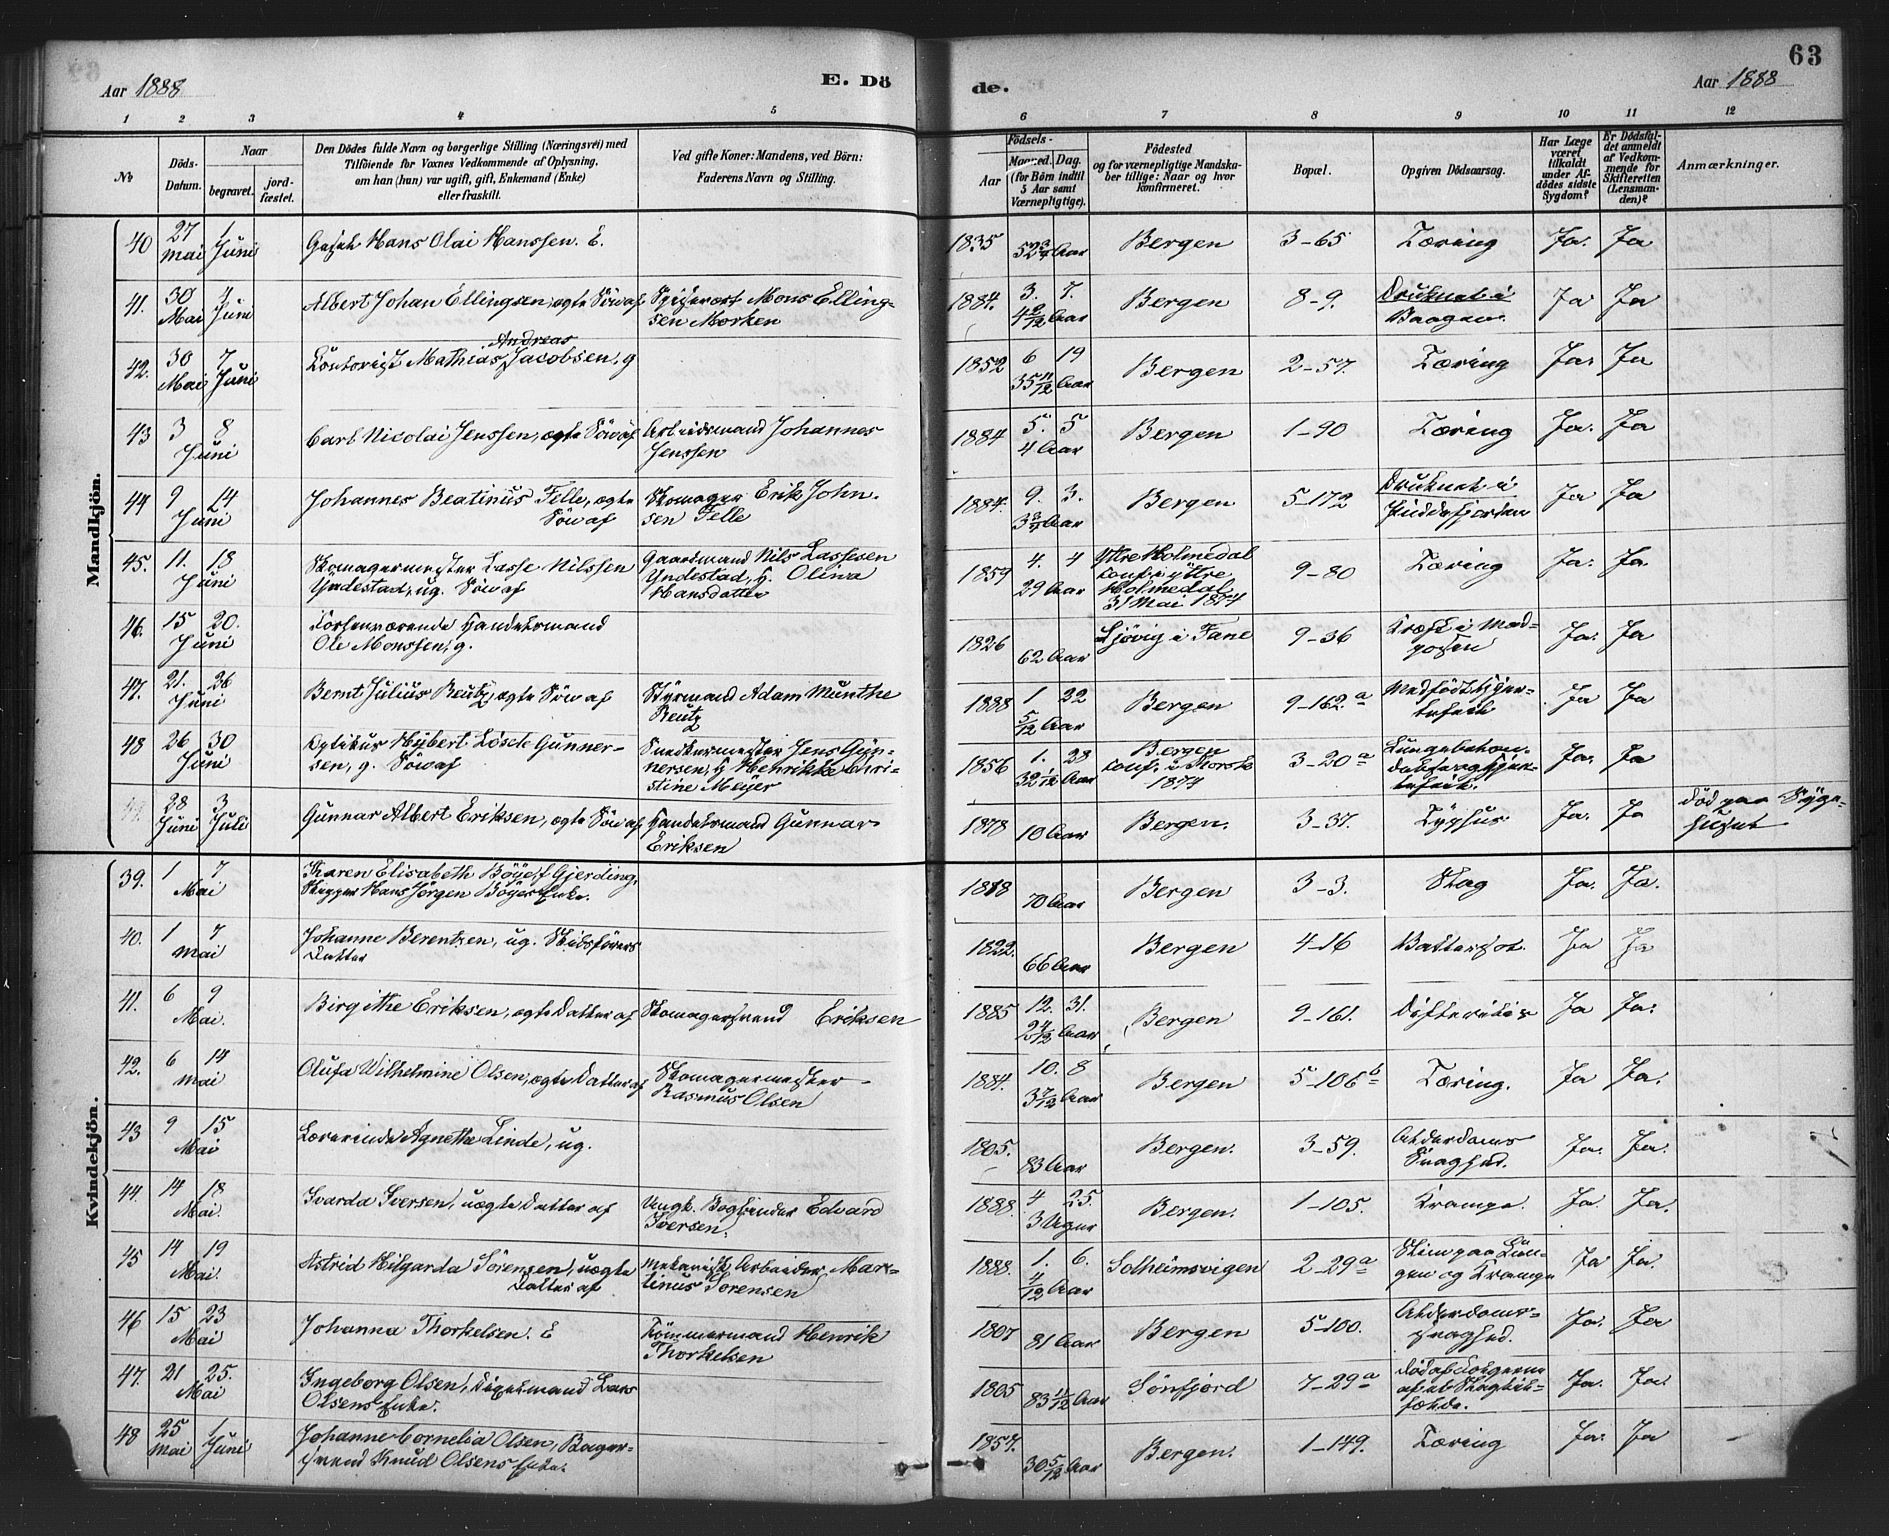 63
Aar 1888
E. Dö
de.
Aar 1888
1 2 3 4 5 6 7 8 9 10 11 12
No
Döds-Datum.
Naar
begravet.
jord-fæstet.
Den Dödes fulde Navn og borgerlige Stilling (Næringsvei) med
Tilföiende for Voxnes Vedkommende af Oplysning,
om han (hun) var ugift, gift, Enkemand (Enke)
eller fraskilt.
Ved gifte Koner: Mandens, ved Börn:
Faderens Navn og Stilling.
Födsels-
Aar
Maaned. Dag.
(for Börn indtil
5 Aar samt
Værnepligtige).
Födested
og for værnepligtige Mandska-
ber tillige: Naar og hvor
konfirmeret.
Bopæl.
Opgiven Dödsaarsag.
Har Læge
været
tilkaldt
under Af-
dödes sidste
Sygdom?
Er Dödsfal-
det anmeldt
af Vedkom-
mende for
Skifteretten
(Lensman-
den)?
Anmærkninger.
Mandkjön.
40 27 Mai 1 Juni Hans Olai Hanssen. E. 1835 52 3/4 Aar Bergen 3-65 Tæring Ja. Ja
41. 30 Mai 4 Juni Albert Johan Ellingsen, ægte Sön af Mons Elling-
sen Morken 1884. 3. 7. 4 2/12 Aar Bergen 8-9. Druknet i
Vaagen. Ja Ja
42. 30 Mai 7 Juni Kontorist Mathias Andreas Jacobsen, g 1852 6 19 35 11/12 Aar Bergen 2-57. Tæring Ja. Ja
43 3 8 Juni Carl Nicolai Jenssen, ægte Sön af Arbeidsmand Johannes
Jenssen 1884 5. 5 4 Aar Bergen 1-90 Tæring Ja. Ja
44 9 14 Juni Johannes Beatinus Felle, ægte
Sön af Skomager Erik John-
sen Felle 1884. 9. 3. 3 3/4 Aar Bergen 5-172 Druknet i
Puddefjorden Ja Ja
45. 11. 18 Juni Skomagermester Lasse Nilssen
Yndestad, ug. Sön af Gaardmand Nils Lassesen
Yndestad, g. Olina
Hansdatter 1859 4. 4 29 Aar Ytre Holmedal
conf. i Ytre
Holmedal
31 Mai 1874 9-80 Tæring Ja. Ja
46. 15 20. Juni Forhenværende Handelsmand
Ole Monssen, g. 1826 62 Aar i Fane 9-36 Kræft i Mad-
posen Ja. Ja
47. 21. 26 Juni Bernt Julius Reutz, ægte Sön af Styrmand Adam Munthe
Reutz 1888 1. 22 5/12 Aar Bergen 9-162.a Medfödt Hjer-
tefeil Ja Ja
48 26 30 Juni Optikus Hybert Gunner-
sen, g. Sön af Snedkermester Jens Gun-
nersen, g Henrikke Chri-
stine Meyer 1856 1. 28 32 Aar Bergen
conf. i Korsk
1871 3-20a Ja. Ja
28 Juni 3 Juli Gunnar Albert Eriksen, ægte Sön af Handelsmand Gunnar
Eriksen 1878 10 Aar Bergen. 3-37. Typhus Ja. Ja Död paa Syge-
huset
Kvindekjön.
39. 1 7 Mai Karen Elisabeth Böye f. Gjerding,
Skipper Hans Jörgen Böyes Enke. 1818 70 Aar Bergen 3-3. Slag Ja. Ja.
40. 1 7 Mai Johanne Berentzen, ug. Skibsförers
Datter 1822. 66 Aar Bergen 4-16 Vattersot. Ja Ja
41. 6 9 Mai. Birgithe Eriksen, ægte Datter af Skomagersvend Eriksen 1885 12. 31. 2 4/12 Aar Bergen 9-161. Difteritis Ja Ja.
42. 6 14 Mai Olufa Wilhelmine Olsen, ægte Datter af Skomagermester
Rasmus Olsen 1884. 10. 8 3 7/12 Aar Bergen 5-106b Tæring. Ja Ja.
43 9 15 Mai Lærerinde Agnethe Linde, ug. 1805. 83 Aar Bergen. 3-59. Alderdoms
Svaghed. Ja. Ja.
44. 14 18 Mai. Svarda Iversen, uægte Datter af Ungk. Bogbinder Edvard
Iversen. 1888. 4 25. 3 Uger Bergen. 1-105. Krampe. Ja. Ja.
45 14 19 Mai. Astrid Hilgarda Sörensen, uægte
Datter af mekanisk Arbeider Mar-
tinus Sörensen 1888. 1. 6. 4/12 Aar Solheimsvigen 2-29a Sliim paa Lun-
gen og Krampe Ja Ja.
46 15 23 Mai Johanna Thorkelsen. E Tömmermand Henrik
Thorkelsen 1807 81 Aar Bergen 5-100. Alderdoms-
svaghed. Ja. Ja
47. 21 25. Mai Ingeborg Olsen, Lars
Olsens Enke. 1805 83 11/12 Aar Söndfjord 7-29a Död af Fölgerne
af et Slagtil-
fælde. Ja. Ja.
48 25 Mai 1 Juni Johanne Cornelia Olsen, Bager-
svend Knud Olsens Enke. 1857. 30 5/12 Aar Bergen. 1-149. Tæring Ja. Ja